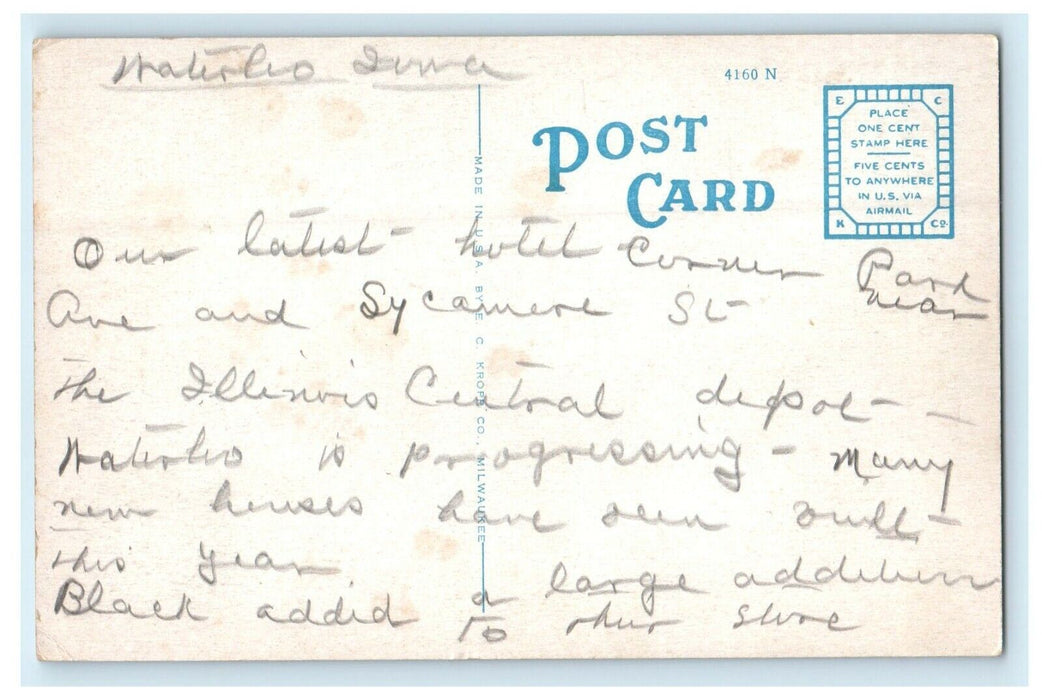 Waterloo Iowa
4160 N
POST CARD
E C
PLACE
ONE CENT
STAMP HERE
FIVE CENTS
TO ANYWHERE
IN U.S. VIA
AIRMAIL
K Co.
MADE IN U.S.A. BY E. C. KROPP CO., MILWAUKEE
Our latest hotel Corner Park
Ave and Sycamore St near
the Illinois Central depot -
Waterloo is progressing - Many
new houses have been built -
this year
Black added a large addition
to their store